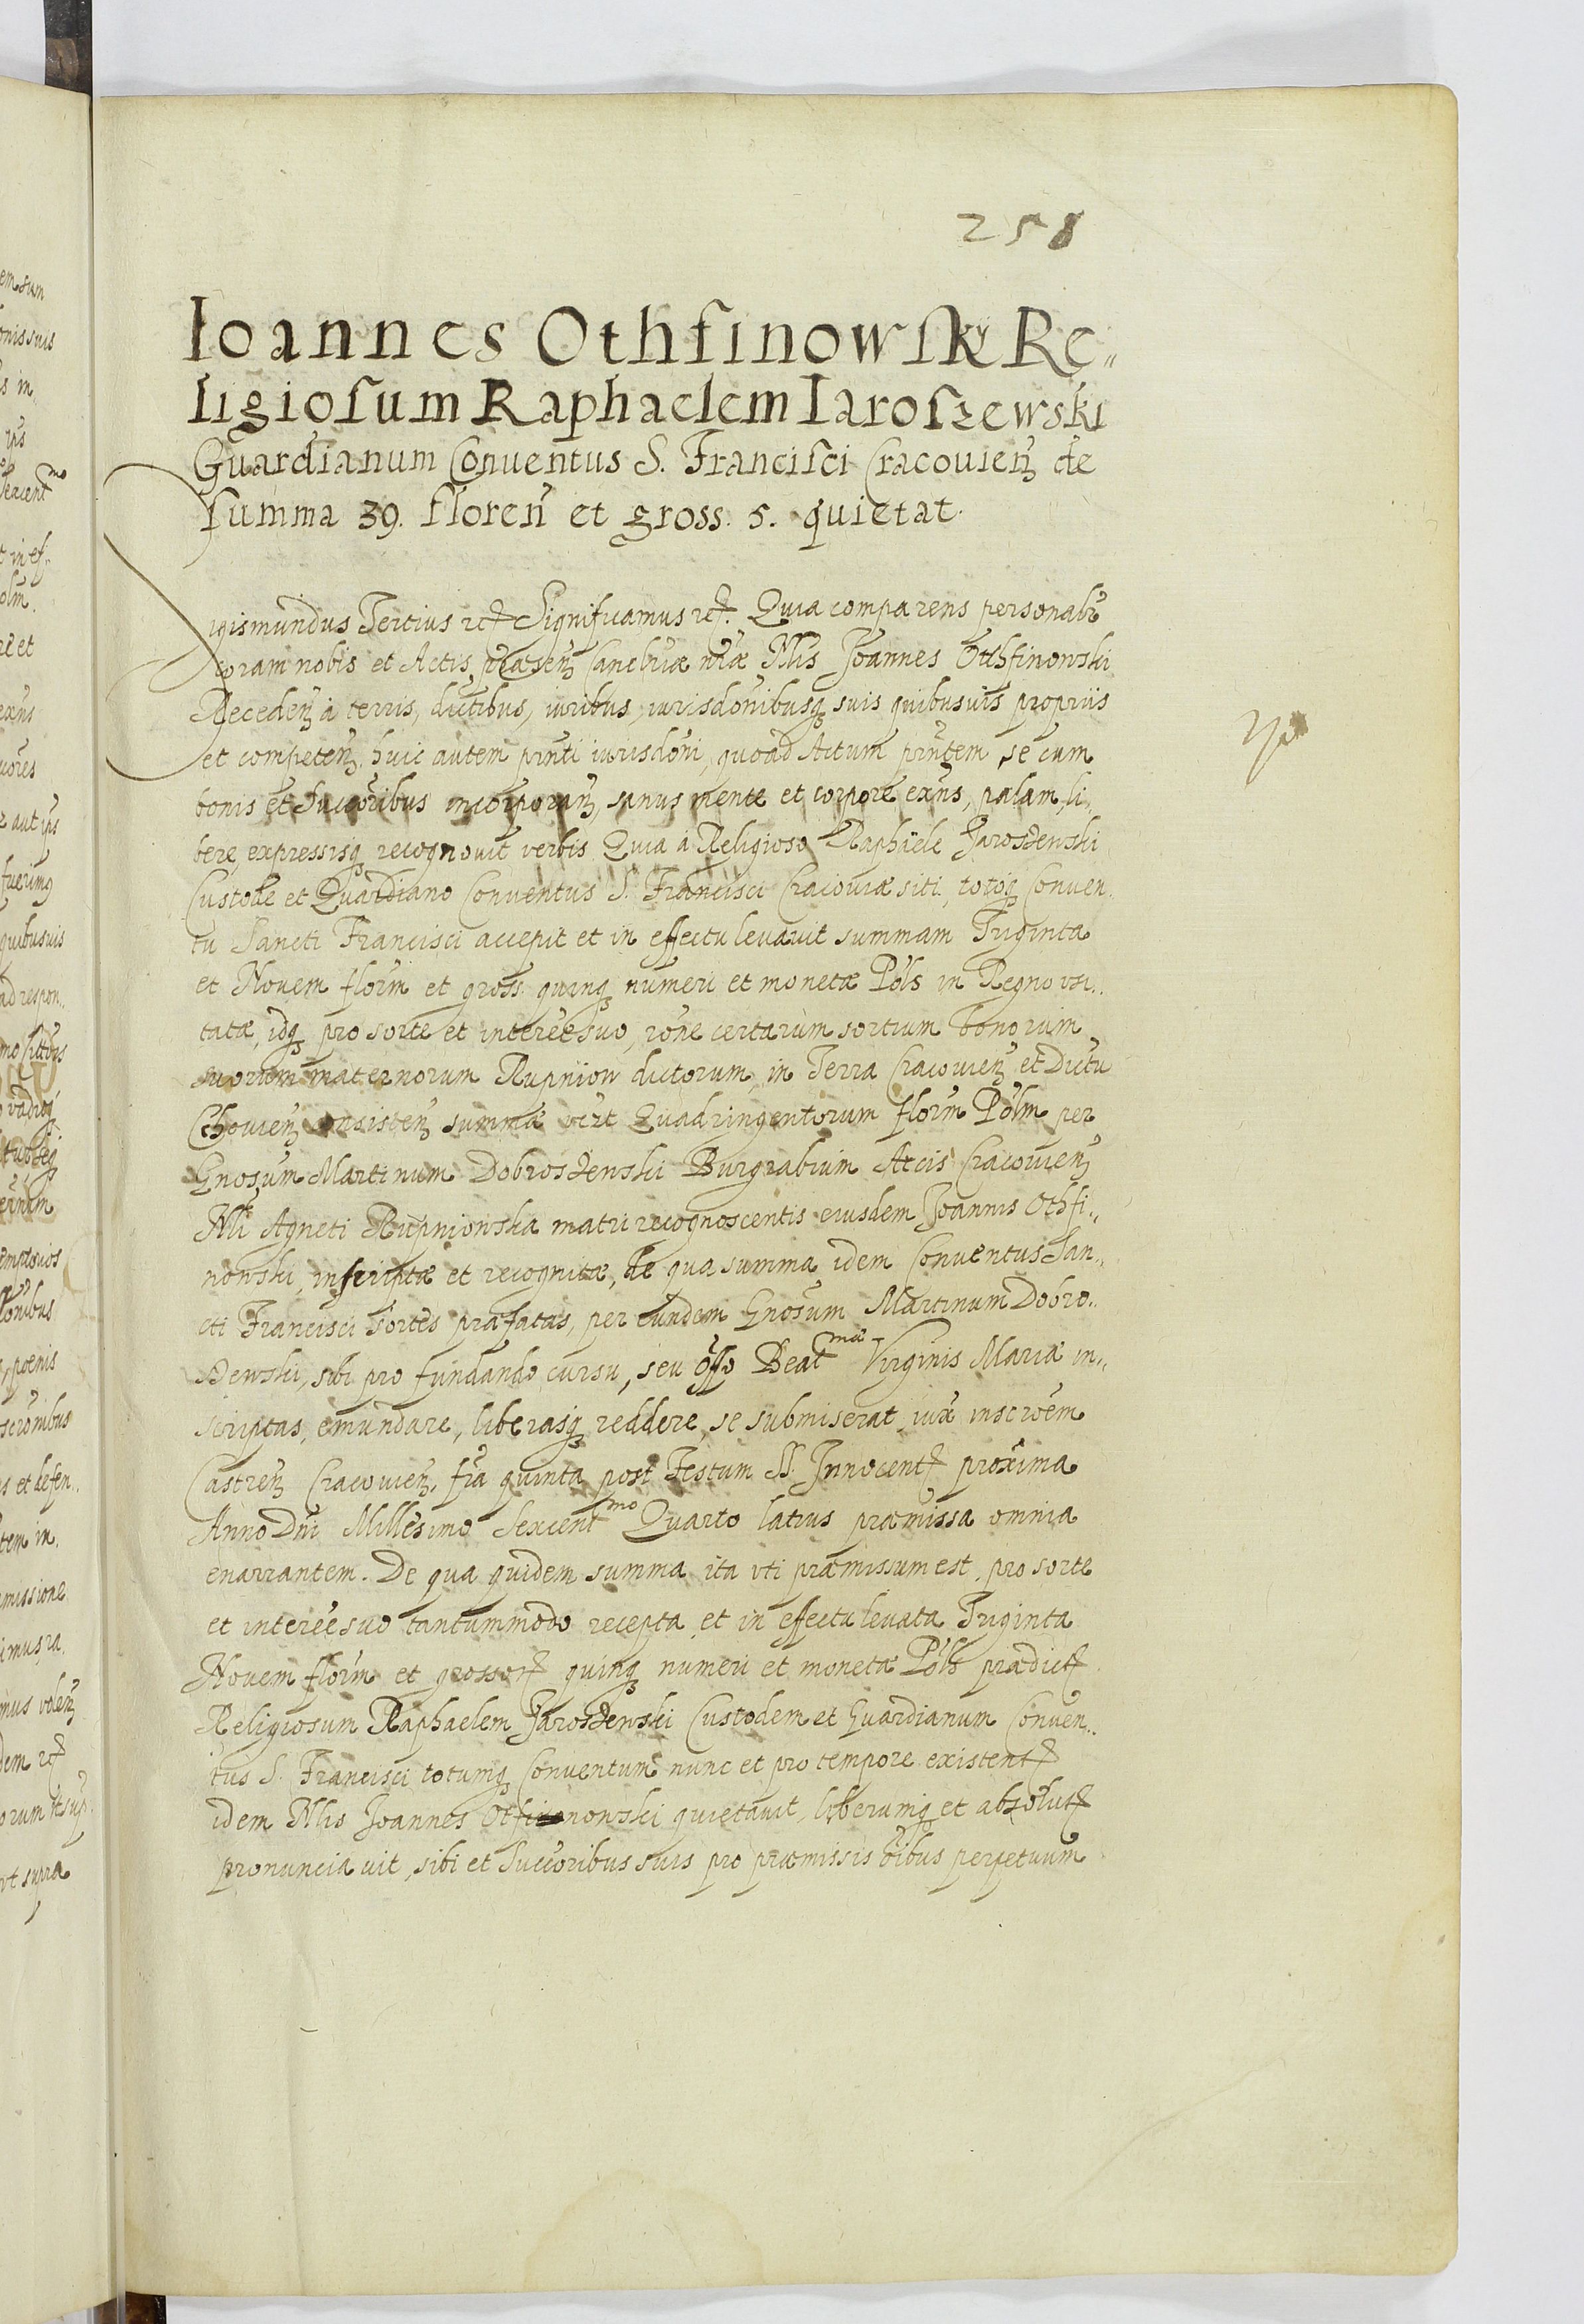 258
Ioannes Othfinowski Re„
ligiosum Raphaelem Iaroszewski
Guardianum Conuentus S. Francisci Cracouien̄ de
summa 39. floren̄ et gross. 5. quietat.
Sigismundus Tertius etc. Significamus etc. Quia comparens personalr̄
coram nobis et Actis præsen̄ Cancellr̄iæ nr̄æ Nlis Joannes Othfinowski
Receden̄ à terris, dictibus, iuribus, iurisdōnibusq̨ suis quibusuis proprijs
et competen̄, huic autem prn̄ti iurisdōni, quoad Actum prn̄tem se cum
bonis et Succōribus incorporan̄, sanus mente et corpore exn̄s, palam, li„
berę expressisq̨ recognouit verbis Quia à Religioso Raphäele Jaroszewski
Custode et Quardiano Conuentus S. Francisci Cracouiæ siti, totoq̨ Conuen„
tu Sancti Francisci accepit et in effectu leuauit summam Triginta
et Nouem flor̄m et gross. quinq̨ numeri et monetæ Pols in Regno vsi„
tatæ, idq̨ pro sorte et interēe suo, rōne certarum sortium bonorum
suorum maternorum Rupniow dictorum in Terra Cracouien̄ et Dictu
Cżhouien̄ consisten̄ summæ vizt Quadringentorum flor̄m Polm per
Gnosum Martinum Dobroszewski Burgrabium Arcis Cracouien̄
Nli Agneti Rupniowska matri recognoscentis eiusdem Joannis Othfi„
nowski, inscriptæ et recognitæ, de qua summa idem Conuentus San„
cti Francisci sortes præfatas, per eundem Gnosum Martinum Dobro„
szewski, sibi pro fundando cursu, seu offo Beat^mæ Virginis Mariæ in„
scriptas, emundare, liberasq̨ reddere, se submiserat, iux̄ inscrōem
Castren̄ Cracouien̄, fr̄ia quinta post Festum SS. Innocent. proxima
Anno Dn̄i Millesimo Sexcent^mo Quarto latius præmissa omnia
enarrantem. De qua quidem summa ita vti præmissum est, pro sorte
et interēe suo tantummodo recepta et in effectu leuata Triginta
Nouem flor̄m et grossor. quinq̨ numeri et monetæ Pols prædict.
Religiosum Raphaelem Jaroszewski Custodem et Guardianum Conuen„
tus S. Francisci totumq̨ Conuentum nunc et pro tempore existent.
idem Nlis Joannes Otfinowski quietauit, liberumq̨ et absolut.
pronunciauit, sibi et Succōribus suis pro præmissis ōibus perpetuum